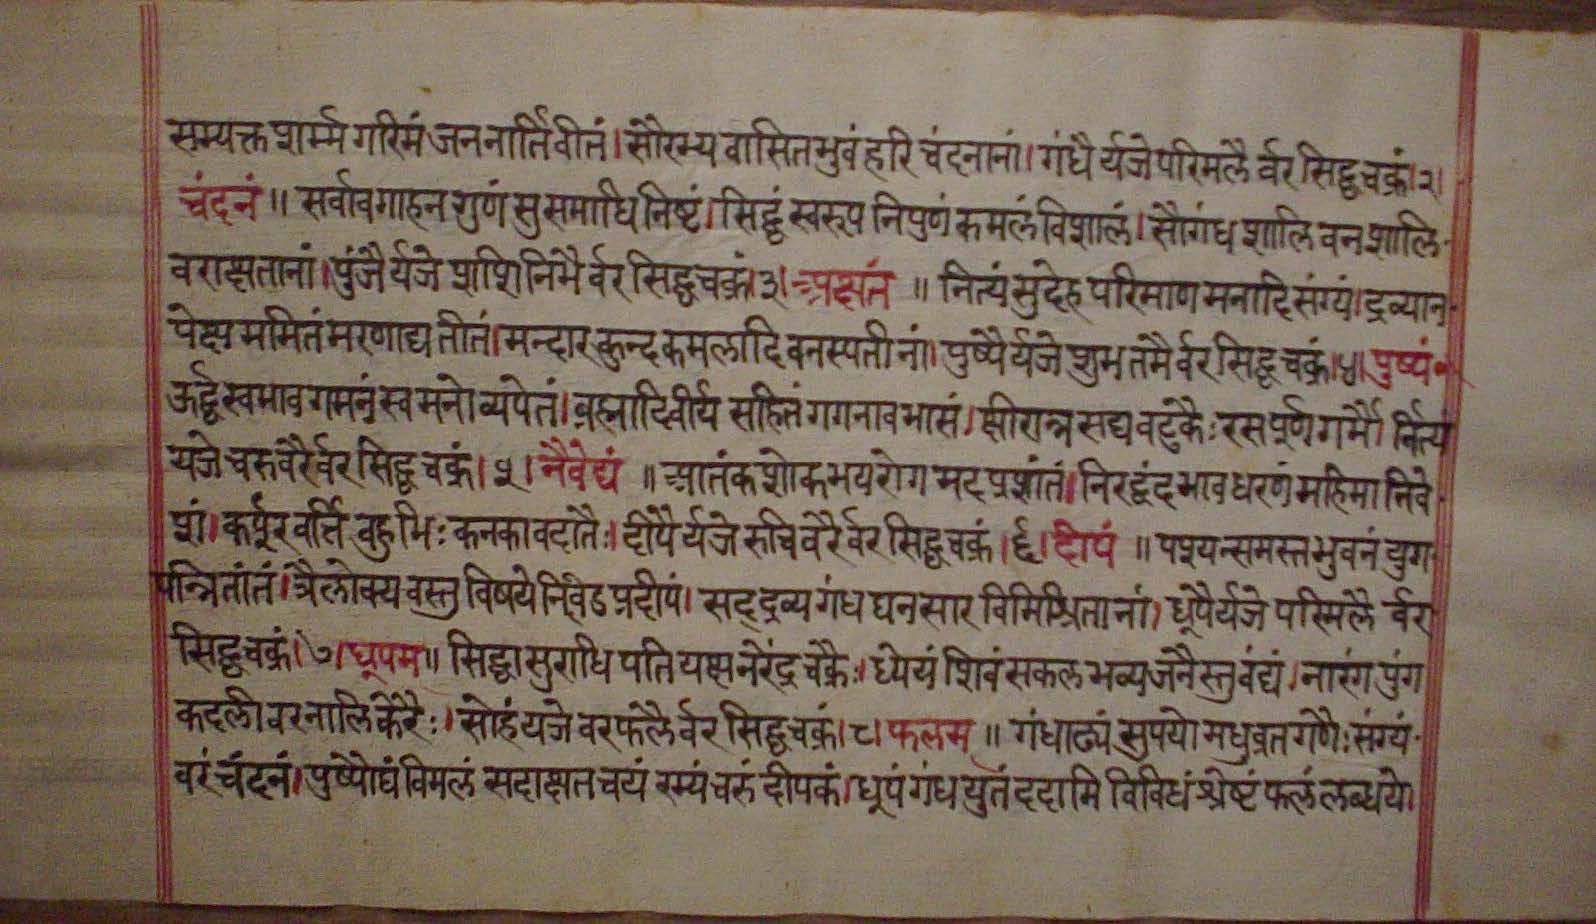 सम्यक्त शर्म्म गरिमं जननार्तिवीतं। सौरभ्य वासितभुवं हरि चंदनानां। गंधै र्यजे परिमलै र्वर सिद्धचक्रं।२।
चंदनं ॥ सर्वावगाहन गुणं सुसमाधि निष्टं। सिद्धं स्वरुप निपुणं कमलं विशालं। सौगंध शालि वन शालि
वराक्षतानां। पुंजै र्यजे शशि निभै र्वर सिद्धचक्रं।३। अक्षतं ॥ नित्यं सुदेह परिमाण मनादि संग्यं। द्रव्यान
पेक्ष्य ममितं मरणाद्य तीतं। मन्दार कुन्द कमलादि वनस्पतीनां। पुष्पै र्यजे शुभ तमै र्वर सिद्धचक्रं।४। पुष्पं
ऊर्द्धस्वभाव गमनं स्व मनो व्यपेतं। ब्रह्मादिवीर्य सहितं गगनावभासं। क्षीरान्न सद्य वटुकैः रसपूर्ण गर्भै। र्नित्यं
यजे चरुवरै र्वर सिद्धचक्रं।५। नैवेद्यं ॥ आतंक शोक भय रोग मद प्रशांतं। निरद्वंद भाव धरणं महिमा निवे
शं। कर्पूर वर्त्ति बहुभिः कनकावदातैः। दीपै र्यजे रुचि वरै र्वर सिद्धचक्रं।६। दीपं ॥ पश्यन्समस्त भुवनं युग
पन्नितांतं। त्रैलोक्य वस्तु विषये निविड प्रदीपं। सद्द्रव्य गंध घनसार विमिश्रितानां। धूपै र्यजे परिमलै र्वर
सिद्धचक्रं।७। धूपम ॥ सिद्धा सुराधि पति यक्ष नरेंद्र चक्रैः। ध्येयं शिवं सकल भव्य जनैस्तु वंद्यं। नारंग पुंग
कदली वर नालिकेरैः। सोहं यजे वर फलै र्वर सिद्धचक्रं।८। फलम् ॥ गंधाढ्यं सुपयो मधुव्रत गणैः संग्यं
वरं चंदनं। पुष्पौघं विमलं सदाक्षत चयं रम्यं चरुं दीपकं। धूपं गंध युतं ददामि विविधं श्रेष्टं फलं लब्धये।